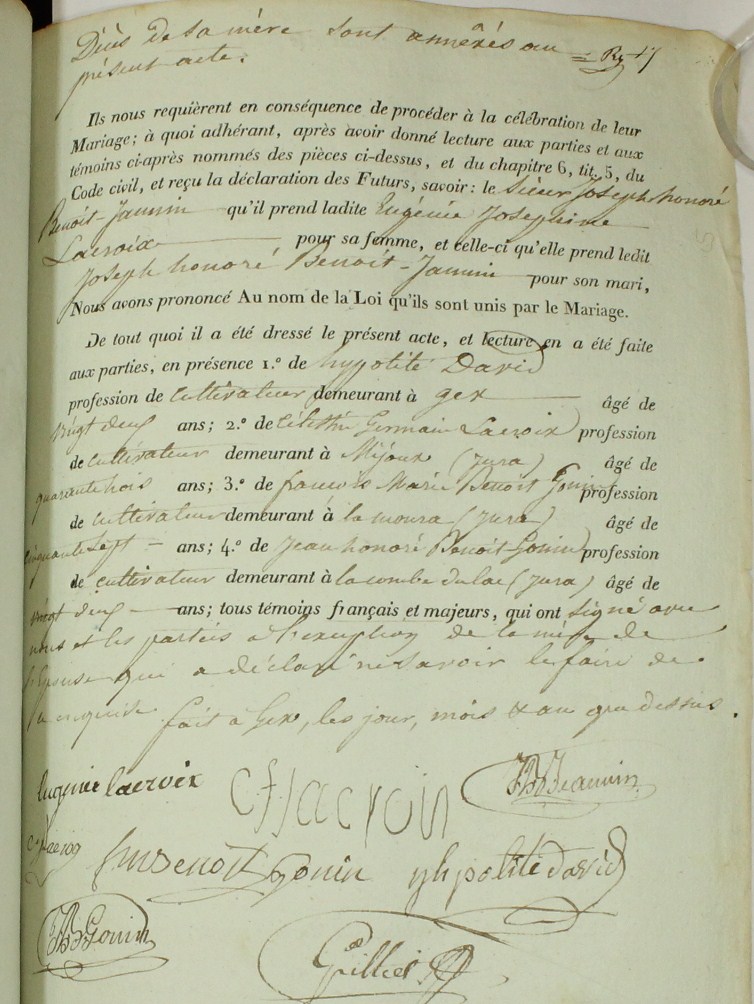 Décès de sa mère sont annéxés au
présent acte.
Ils nous requièrent en conséquence de procéder à la célébration de leur
Mariage; à quoi adhérant, après avoir donné lecture aux parties et aux
témoins ci-après nommés des pièces ci-dessus, et du chapitre 6, tit. 5, du
Code civil, et reçu la déclaration des Futurs, savoir: le Sieur Joseph honoré
Benoit-Jannin qu'il prend ladite Eugénie Josephine
Lacroix pour sa femme, et celle-ci qu'elle prend ledit
Joseph honoré Benoit-Jannin pour son mari,
Nous avons prononcé Au nom de la Loi qu'ils sont unis par le Mariage.
De tout quoi il a été dressé le présent acte, et lecture en a été faite
aux parties, en présence 1.º de hyppolite David
profession de cultivateur demeurant à gex âgé de
vingt deux ans; 2.º de Célestin Germain Lacroix profession
de cultivateur demeurant à Mijoux (jura) âgé de
quarante trois ans; 3.º de françois Marie Benoit Gonin profession
de cultivateur demeurant à la moura (jura) âgé de
cinquante sept ans; 4.º de Jean honoré Benoit-Gonin profession
de cultivateur demeurant à la combe du lac (jura) âgé de
vingt deux ans; tous témoins français et majeurs, qui ont signé avec
nous et les parties à l'exception de la mère de
l'épouse qui a déclaré ne savoir le faire de
ce requise. fait à Gex, les jour, mois & an que dessus.
Eugenie lacroix cflacroix JHBJeannin
fmBenoit gonin yhpolite david
JHBGonin